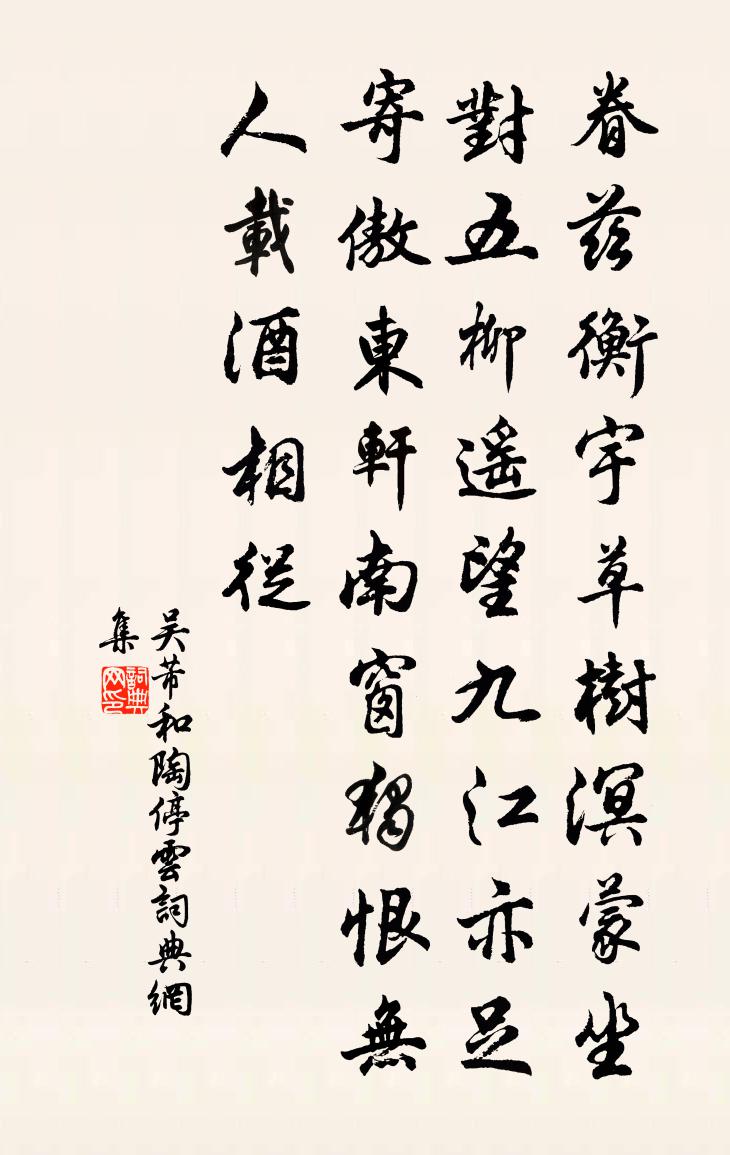 眷茲衡宇草樹溟蒙坐
對五柳遥望九江亦足
寄傲東軒南窗独恨無
人載酒相從
吴芾和陶停雲詞典網
集
詞典
网印